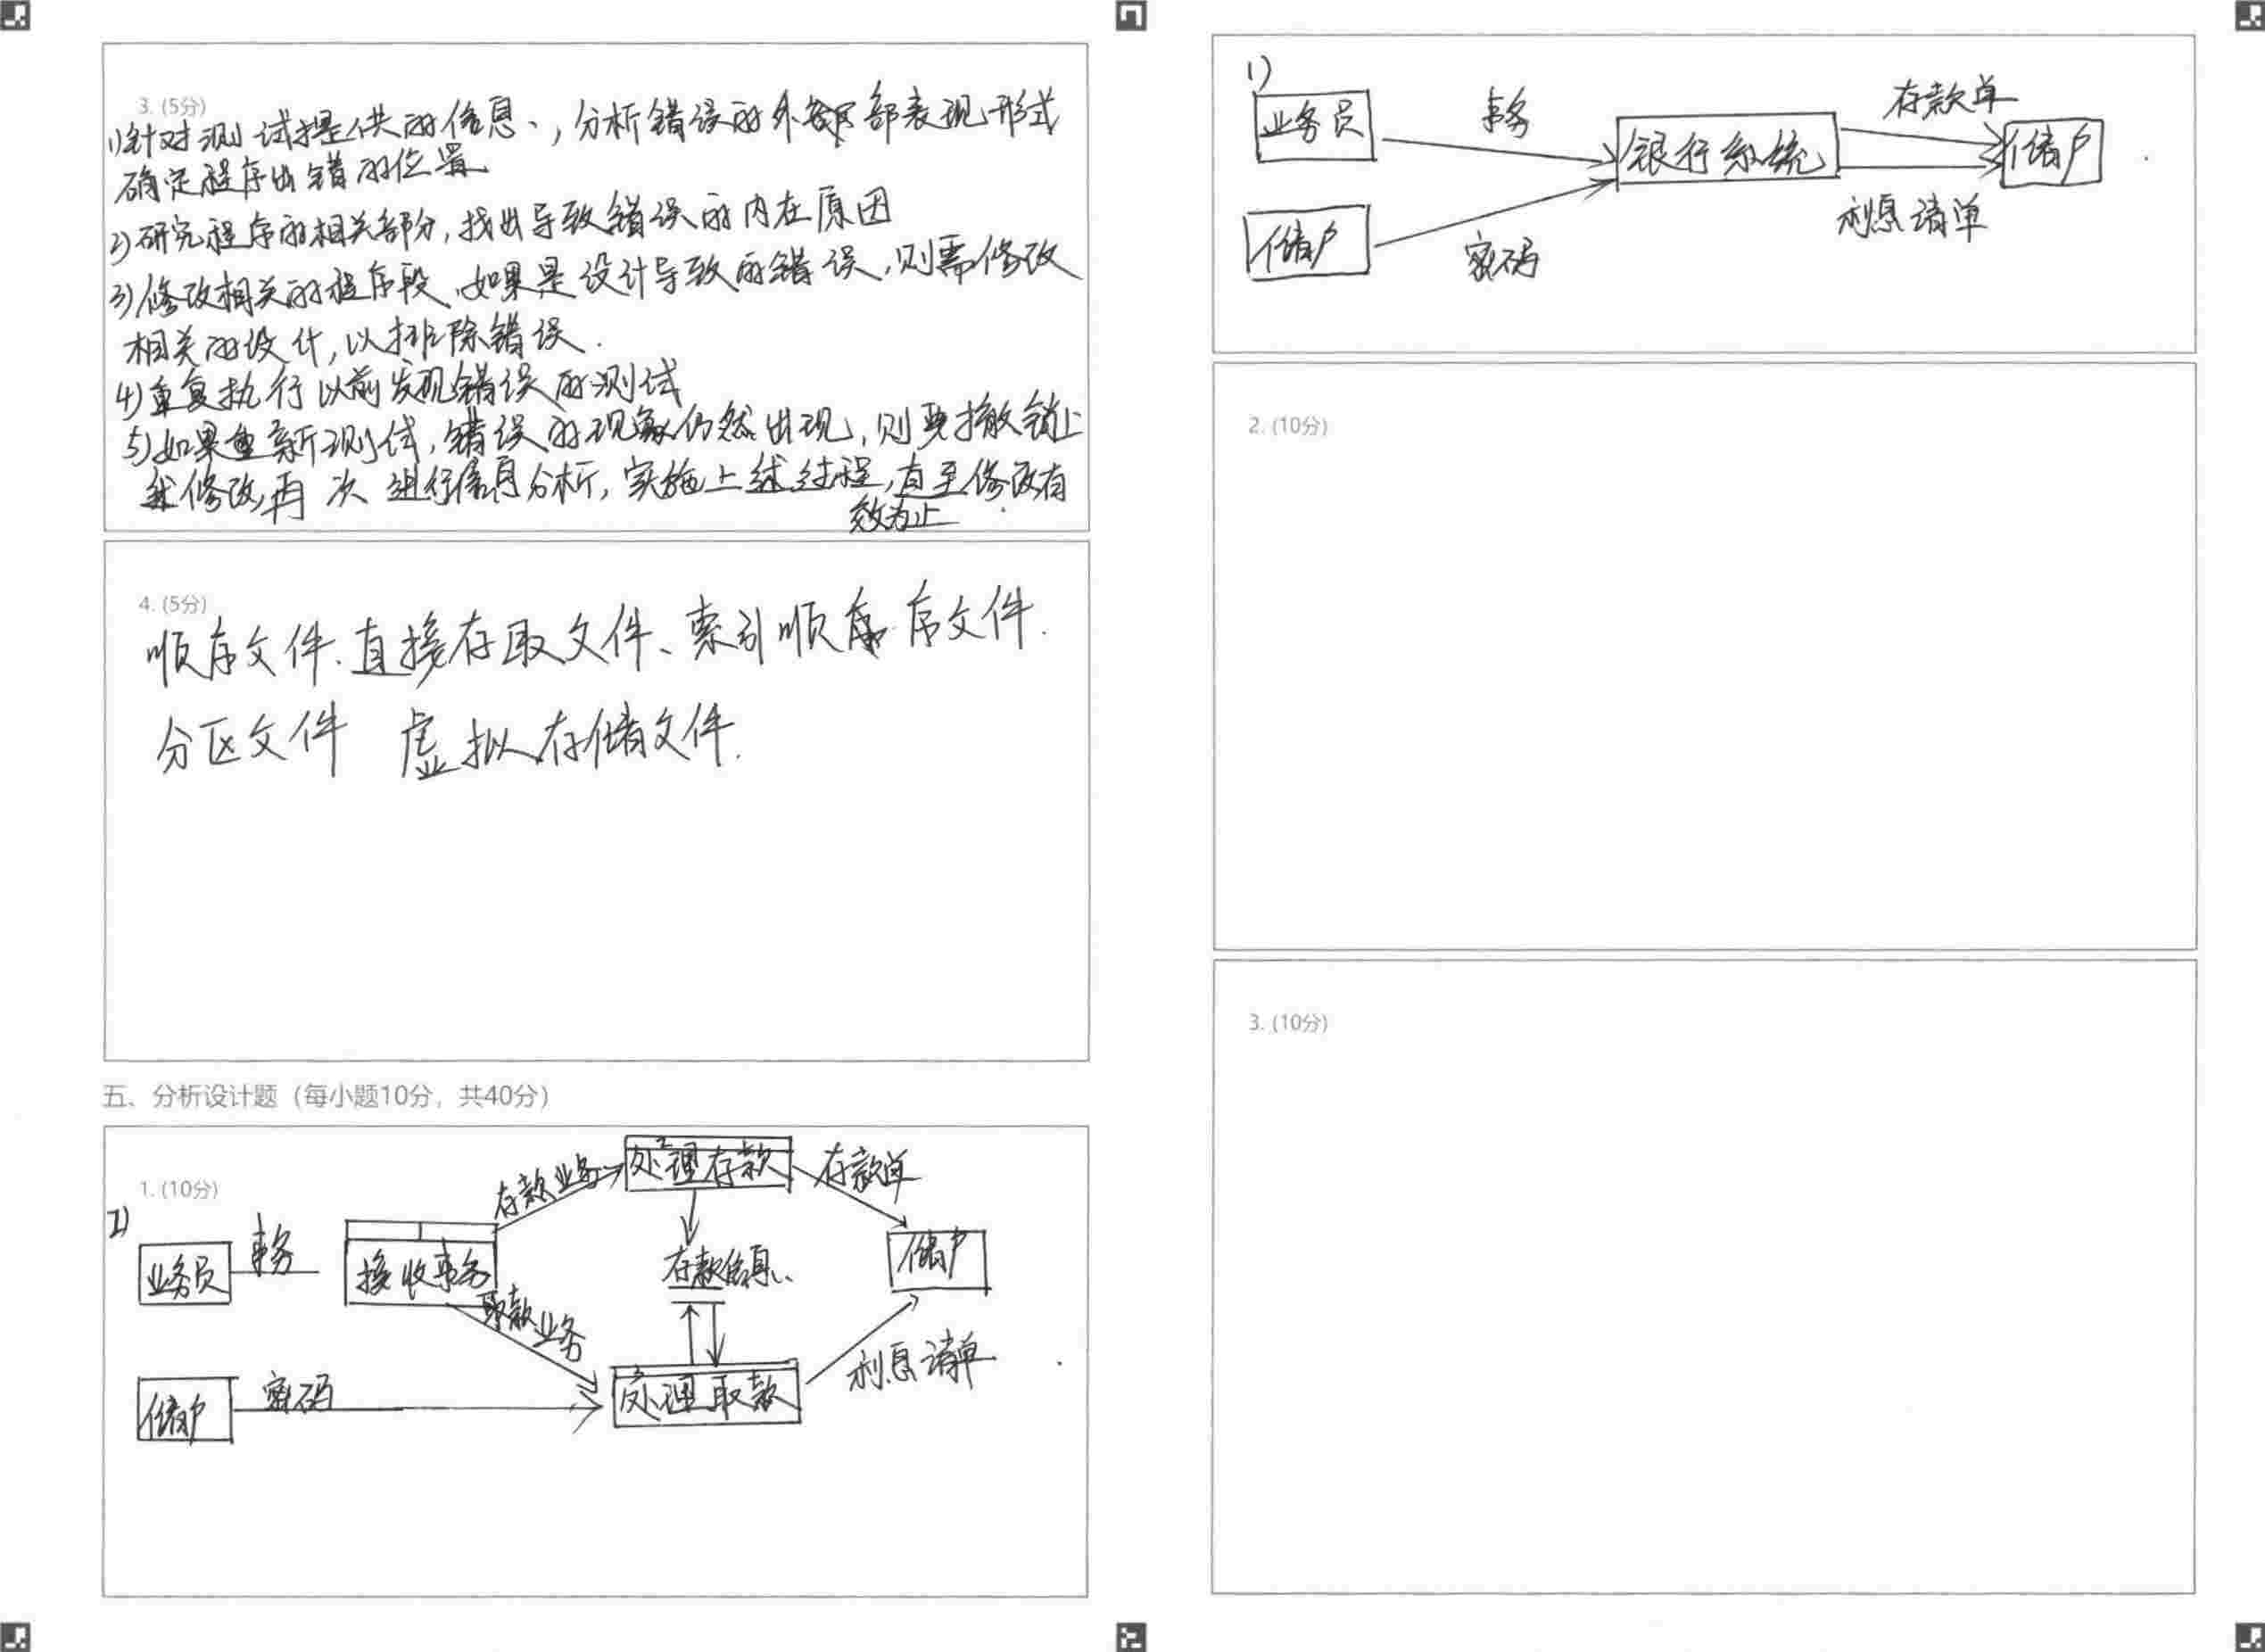 3. (5分)
1)针对测试提供的信息、,分析错误的外部表现形式
确定程序出错的位置
2)研究程序的相关部分,找出导致错误的内在原因
3)修改相关的程序段,如果是设计导致的错误,则需修改
相关的设计,以排除错误.
4)重复执行以前发现错误的测试
5)如果重新测试,错误的现象仍然出现,则要撤销上
修改,再次进行信息分析,实施上述过程,直至修改有
效为止
4. (5分)
顺序文件、直接存取文件、索引顺序文件.
分区文件 虚拟存储文件.
五、分析设计题(每小题10分,共40分)
1. (10分)
2)
业务员
事务
接收事务
存款业务
处理存款
存款单
储户
存款信息
取款业务
储户
密码
处理取款
利息清单
1)
业务员
事务
银行系统
存款单
储户
储户
密码
利息清单
2. (10分)
3. (10分)